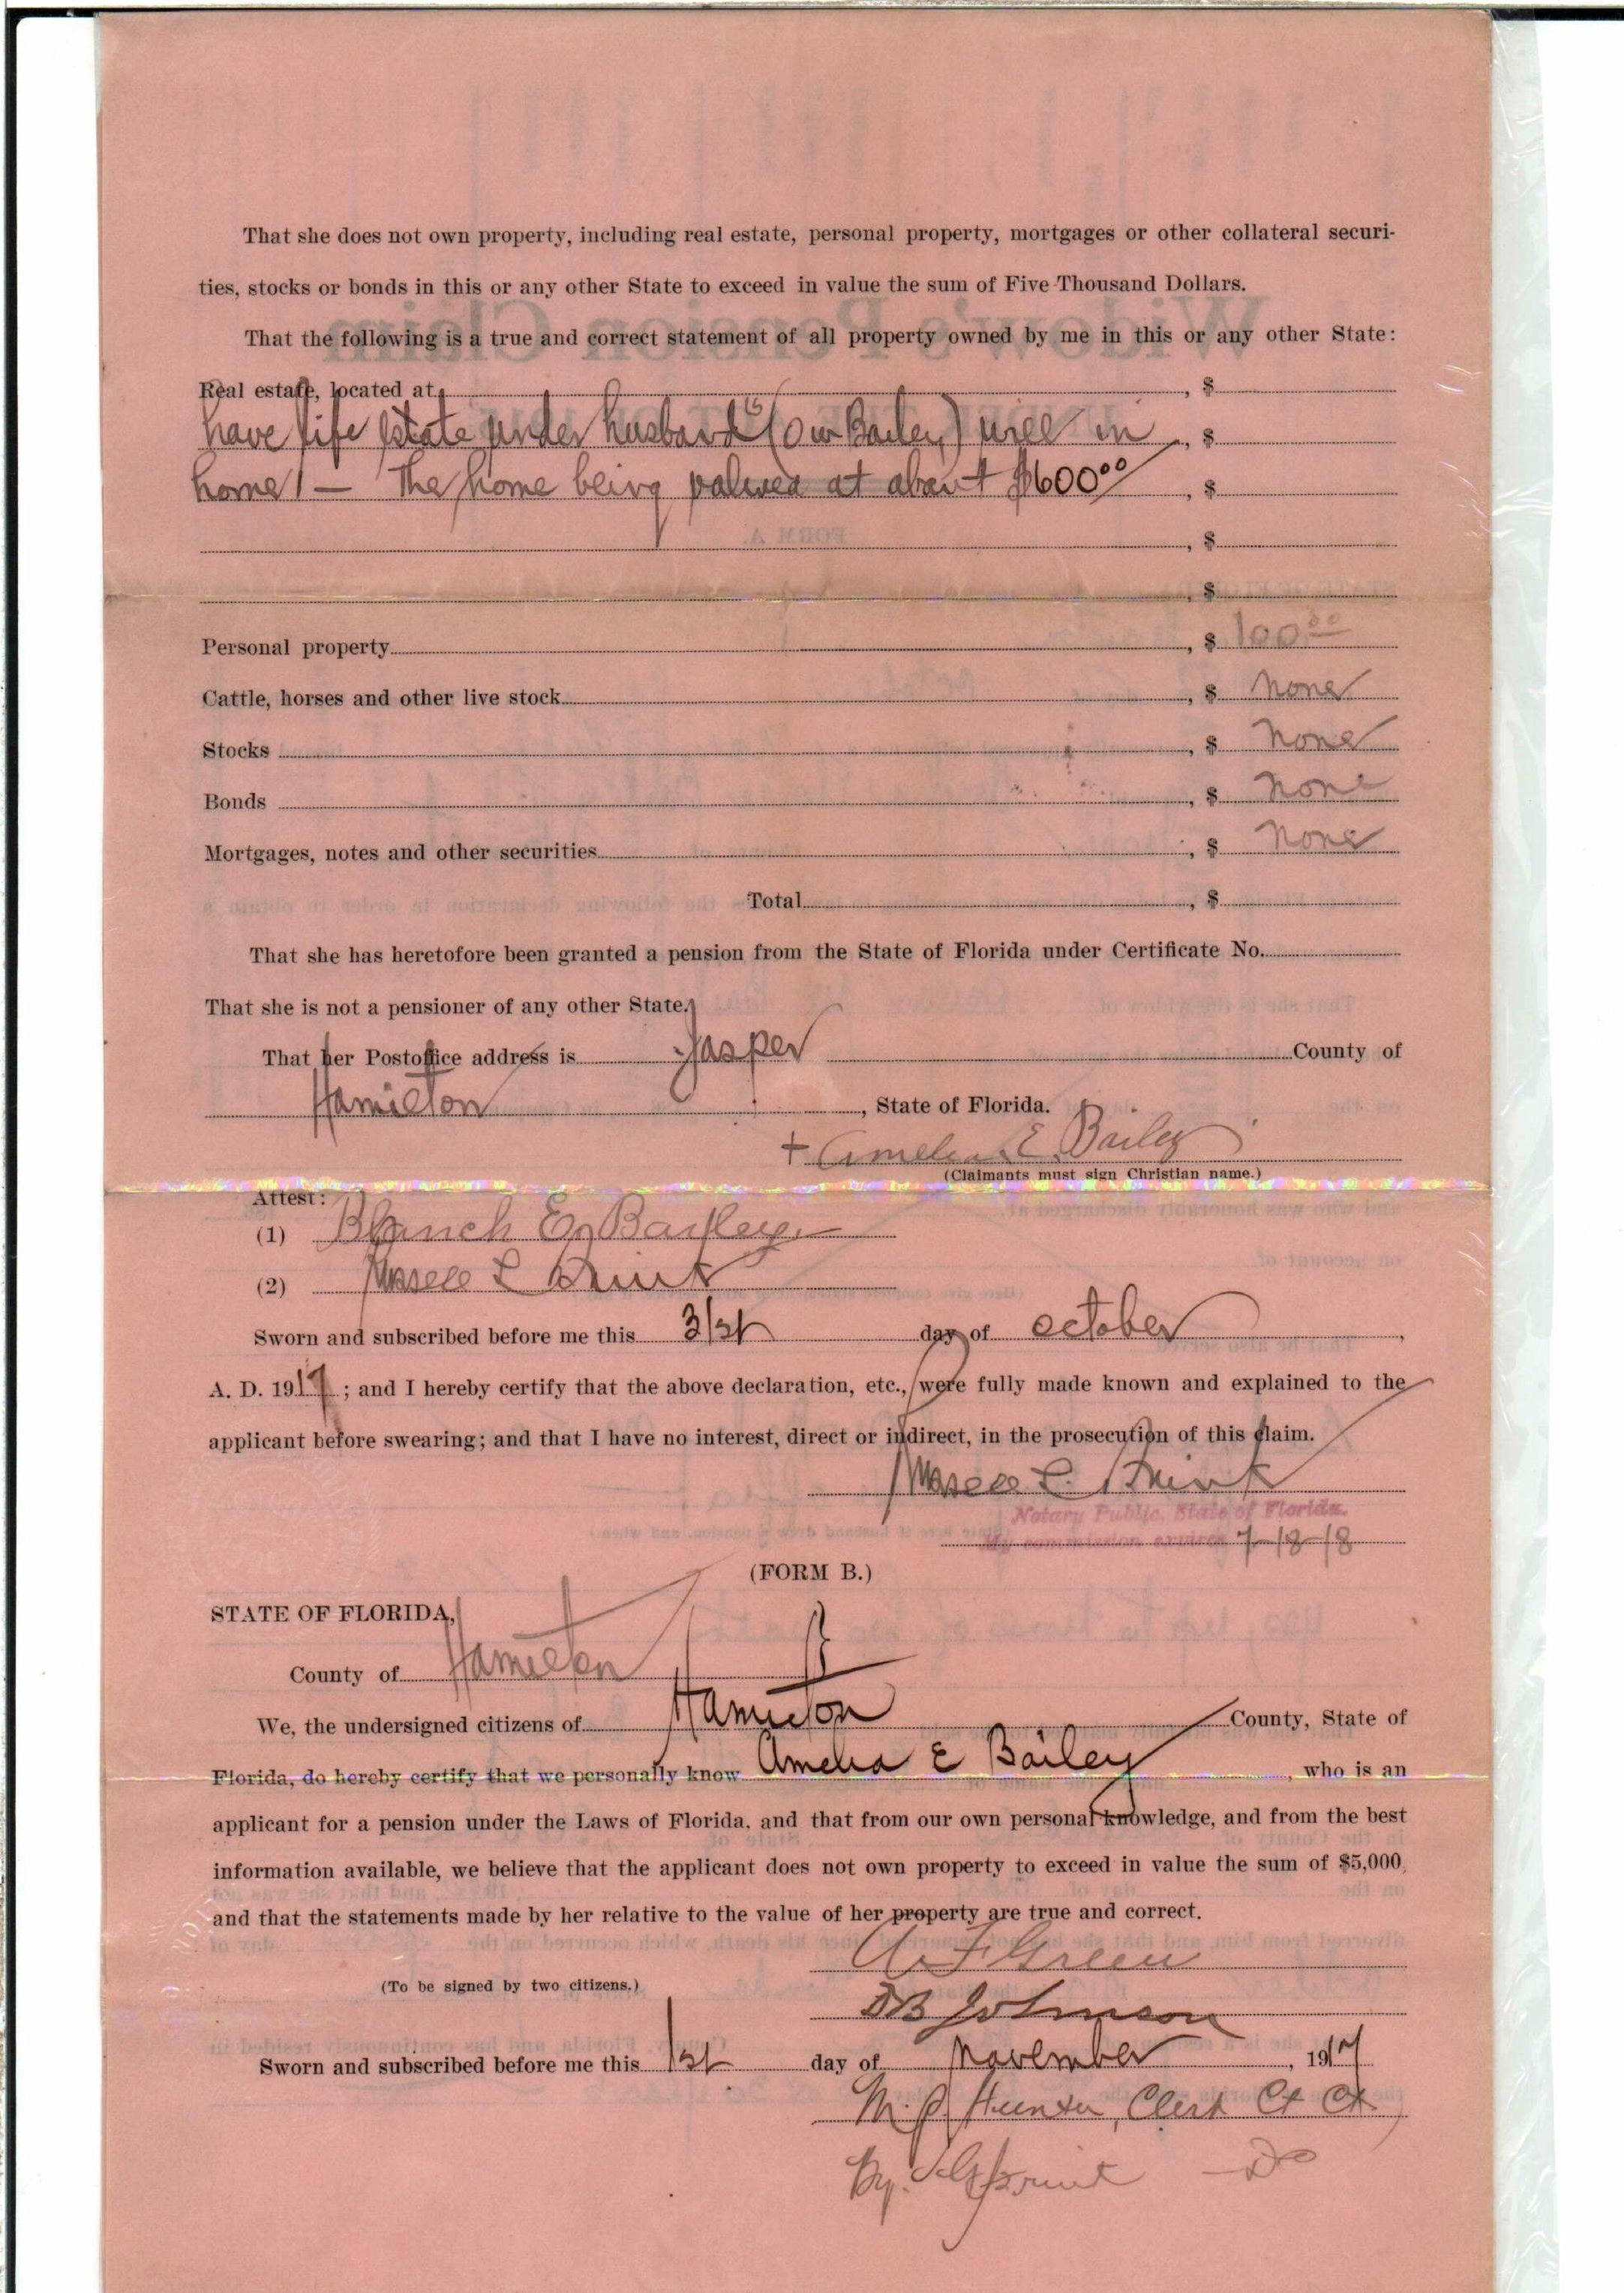 That she does not own property, including real estate, personal property, mortgages or other collateral securi-
ties, stocks or bonds in this or any other State to exceed in value the sum of Five Thousand Dollars.
That the following is a true and correct statement of all property owned by me in this or any other State:
Real estate, located at , $
have life estate under husband's (O W Bailey) will in , $
home! — The home being valued at about $600⁰⁰ , $
, $
, $
Personal property , $ 100⁰⁰
Cattle, horses and other live stock , $ none
Stocks , $ none
Bonds , $ none
Mortgages, notes and other securities , $ none
Total , $
That she has heretofore been granted a pension from the State of Florida under Certificate No.
That she is not a pensioner of any other State.
That her Postoffice address is Jasper County of
Hamilton , State of Florida.
+ Amelia E. Bailey
(Claimants must sign Christian name.)
Attest:
(1) Blanch E. Bailey
(2)
Sworn and subscribed before me this 31st day of October ,
A. D. 1917 ; and I hereby certify that the above declaration, etc., were fully made known and explained to the
applicant before swearing; and that I have no interest, direct or indirect, in the prosecution of this claim.
Notary Public, State of Florida.
My commission expires 7-18-18
(FORM B.)
STATE OF FLORIDA,
County of Hamilton
We, the undersigned citizens of Hamilton County, State of
Florida, do hereby certify that we personally know Amelia E Bailey , who is an
applicant for a pension under the Laws of Florida, and that from our own personal knowledge, and from the best
information available, we believe that the applicant does not own property to exceed in value the sum of $5,000,
and that the statements made by her relative to the value of her property are true and correct.
Green
(To be signed by two citizens.)
D B Johnson
Sworn and subscribed before me this 1st day of November , 1917
M. Hunter, Clerk Ct Ct
By